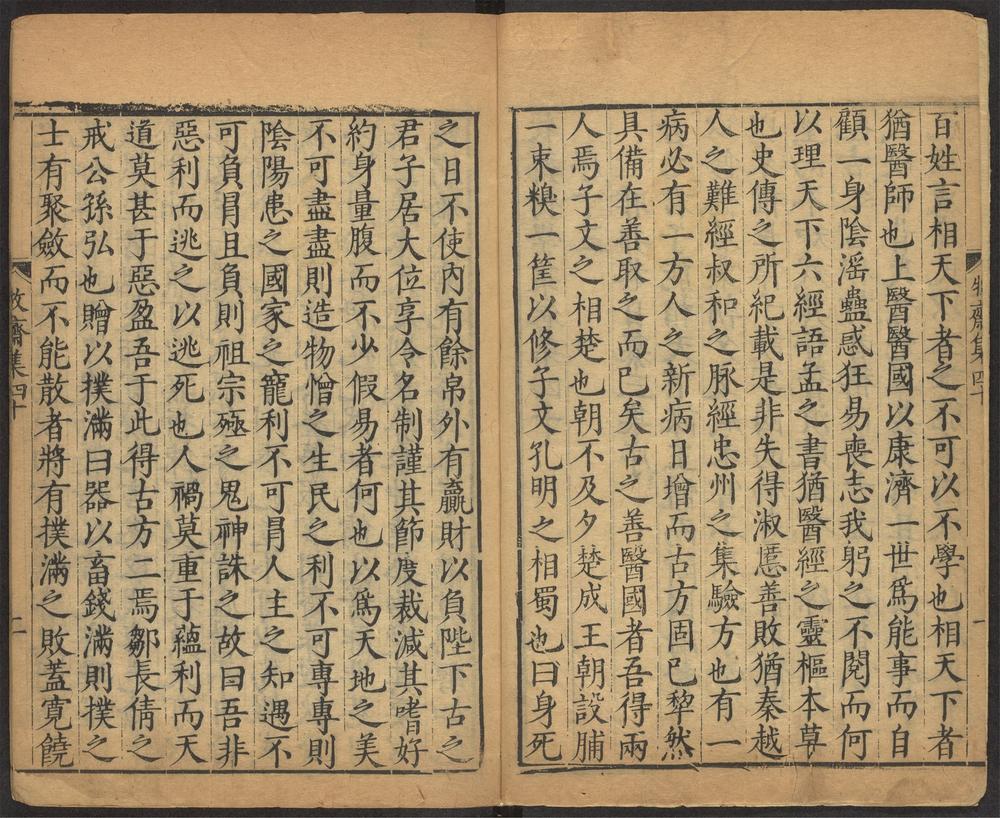 百姓言相天下者之不可以不學也相天下者
猶醫師也上醫醫國以康濟一世爲能事而自
顧一身陰滛蠱惑狂易喪志我躬之不閱而何
以理天下六經語孟之書猶醫經之靈樞本草
也史傳之所紀載是非失得淑慝善敗猶秦越
人之難經叔和之脉經忠州之集驗方也有一
病必有一方人之新病日增而古方固已犂然
具備在善取之而已矣古之善醫國者吾得兩
人焉子文之相楚也朝不及夕楚成王朝設脯
一束糗一筐以修子文孔明之相蜀也曰身死
牧齋集四十
一
之日不使內有餘帛外有贏財以負陛下古之
君子居大位享令名制謹其節度裁減其嗜好
約身量腹而不少假易者何也以爲天地之美
不可盡盡則造物憎之生民之利不可專專則
陰陽患之國家之寵利不可冒人主之知遇不
可負冒且負則祖宗殛之鬼神誅之故曰吾非
惡利而逃之以逃死也人禍莫重于蘊利而天
道莫甚于惡盈吾于此得古方二焉鄒長倩之
戒公孫弘也贈以撲滿曰器以畜錢滿則撲之
士有聚斂而不能散者將有撲滿之敗蓋寬饒
牧齋集四十
二